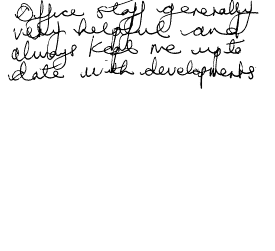 Office staff generally
very helpful and
always keep me up to
date with developments